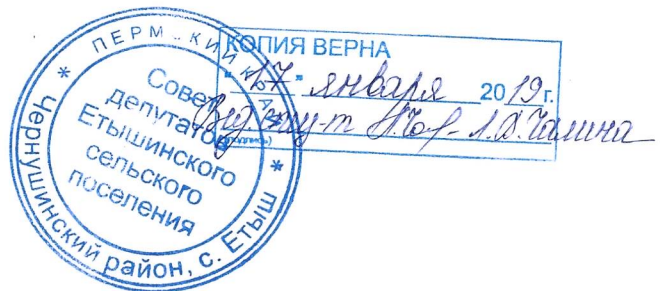 ПЕРМСКИЙ КРАЙ
* Чернушинский район, с. Етыш *
Совет
депутатов
Етышинского
сельского
поселения
КОПИЯ ВЕРНА
"17" января 2019 г.
(подпись)